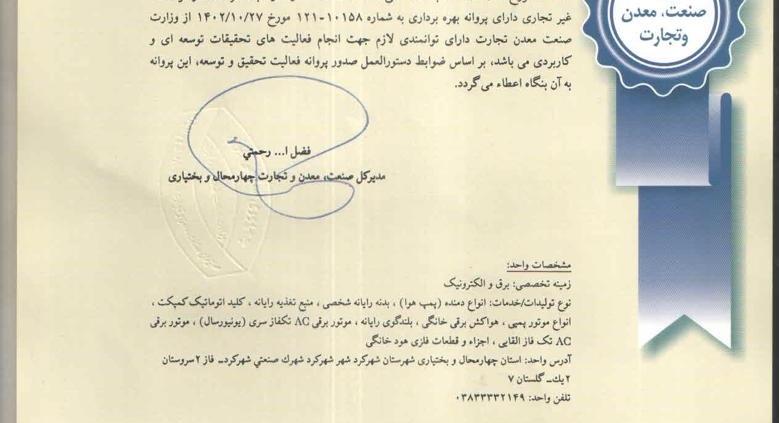 صنعت، معدن
وتجارت
غیر تجاری دارای پروانه بهره برداری به شماره ۱۰۱۵۸-۱۲۱ مورخ ۱۴۰۲/۱۰/۲۷ از وزارت
صنعت معدن تجارت دارای توانمندی لازم جهت انجام فعالیت های تحقیقات توسعه ای و
کاربردی می باشد، بر اساس ضوابط دستورالعمل صدور پروانه فعالیت تحقیق و توسعه، این پروانه
به آن بنگاه اعطاء می گردد.
فضل ا... رحمتي
مدیرکل صنعت، معدن و تجارت چهارمحال و بختیاری
مشخصات واحد:
زمینه تخصصی: برق و الکترونیک
نوع تولیدات/خدمات: انواع دمنده (پمپ هوا) ، بدنه رایانه شخصی ، منبع تغذیه رایانه ، کلید اتوماتیک کمپکت ،
انواع موتور پمپی ، هواکش برقی خانگی ، بلندگوی رایانه ، موتور برقی AC تکفاز سری (یونیورسال) ، موتور برقی
AC تک فاز القایی ، اجزاء و قطعات فلزی هود خانگی
آدرس واحد: استان چهارمحال و بختیاری شهرستان شهرکرد شهر شهرکرد شهرك صنعتي شهرکرد_ فاز ۲ سروستان
۲ یك_ گلستان ۷
تلفن واحد: ۰۳۸۳۳۳۳۲۱۴۹